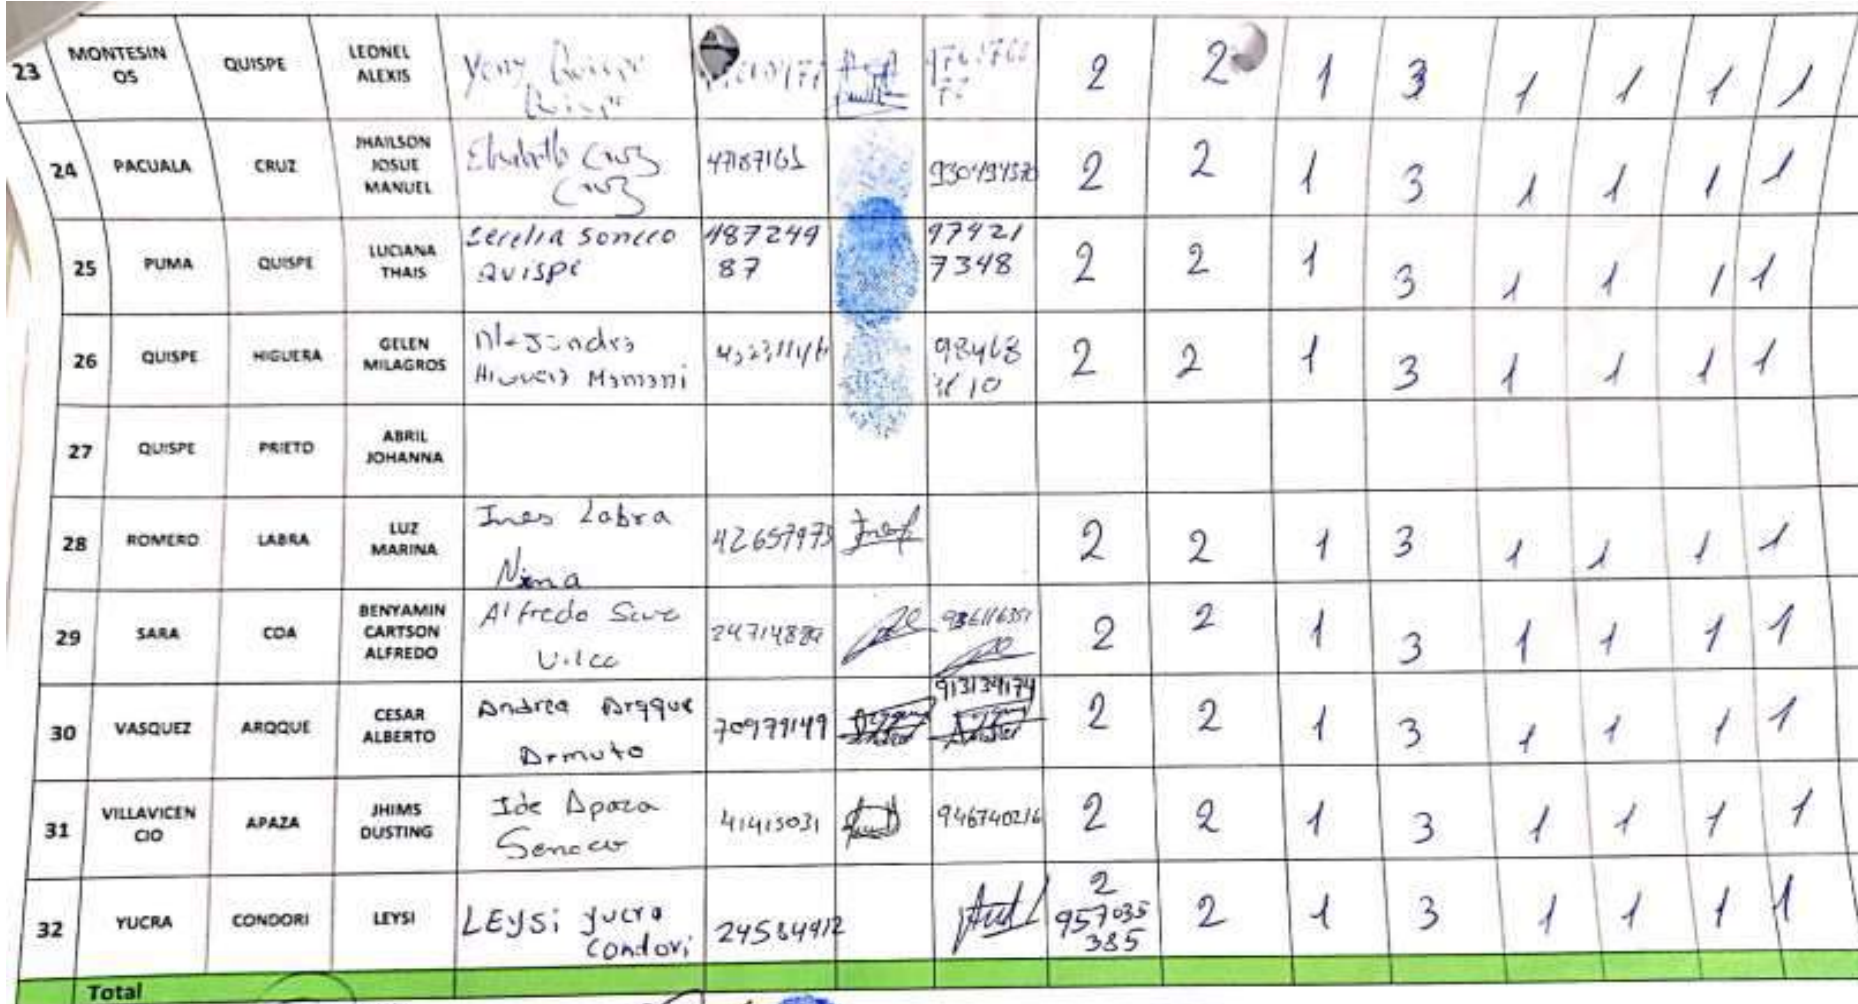 23 MONTESIN OS QUISPE LEONEL ALEXIS Yeny Quispe Quispe 2 2 1 3 1 1 1 1
24 PACUALA CRUZ JHAILSON JOSUE MANUEL Elisabeth Cruz Cruz 47187161 930494370 2 2 1 3 1 1 1 1
25 PUMA QUISPE LUCIANA THAIS Quispe 487249 87 97421 7348 2 2 1 3 1 1 1 1
26 QUISPE HIGUERA GELEN MILAGROS Alejandra Mamani 98468 2 2 1 3 1 1 1 1
27 QUISPE PRIETO ABRIL JOHANNA
28 ROMERO LABRA LUZ MARINA Ines Labra Nina 42657973 2 2 1 3 1 1 1 1
29 SARA COA BENYAMIN CARTSON ALFREDO Alfredo Vilca 24714889 936116351 2 2 1 3 1 1 1 1
30 VASQUEZ AROQUE CESAR ALBERTO Andrea Armuto 70979149 913134174 2 2 1 3 1 1 1 1
31 VILLAVICEN CIO APAZA JHIMS DUSTING Ide Apaza 41415031 946740216 2 2 1 3 1 1 1 1
32 YUCRA CONDORI LEYSI LEYSi yucra Condori 24584912 2 957035 385 2 1 3 1 1 1 1
Total